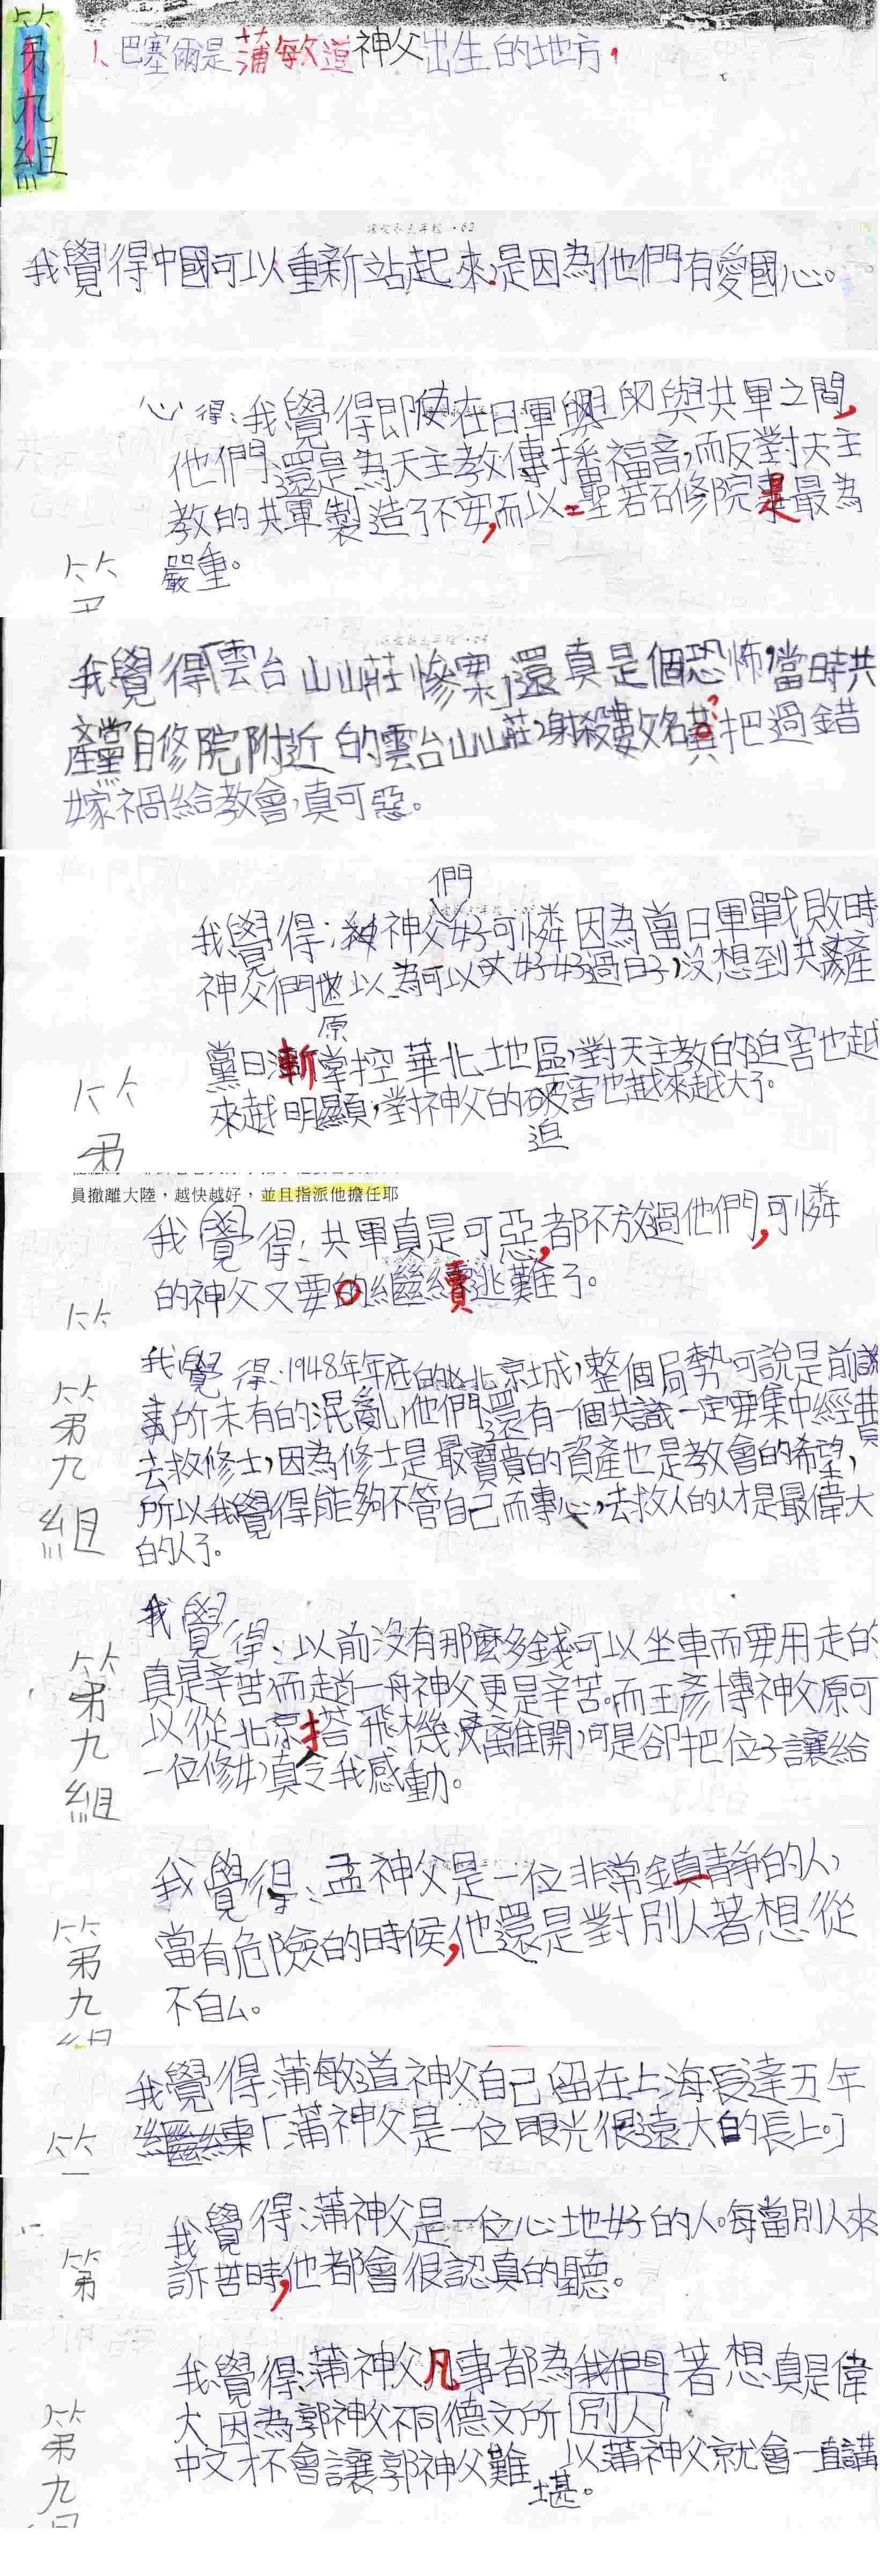 第九組
1、巴塞爾是蒲敏道神父出生的地方，
我覺得中國可以重新站起來，是因為他們有愛國心。
心得：我覺得即使在日軍與與共軍之間，
他們還是為天主教傳播福音，而反對天主
教的共軍製造了不安，而以聖若石修院是最為
嚴重。
第
我覺得「雲台山山莊慘案」還真是個恐怖，當時共
產黨自修院附近的雲台山山莊，謝殺數名黃把過錯
嫁禍給教會，真可惡。
們
我覺得：神父好可憐因為當日軍戰敗時
神父們也以為可以好好過日子，沒想到共產
原
黨日漸掌控華北地區，對天主教的迫害也越
來越明顯，對神父的破害也越來越大了。
迫
第
員撤離大陸，越快越好，並且指派他擔任耶
我覺得：共軍真是可惡，都不放過他們，可憐
的神父又要的繼續逃難了。
我覺得：1948年年底的北京城，整個局勢可說是前
所未有的混亂，他們還有一個共識一定要集中經費
去救修士，因為修士是最寶貴的資產也是教會的希望，
所以我覺得能夠不管自己而專心，去救人的人才是最偉大
的人了。
第九組
我覺得：以前沒有那麼多錢可以坐車而要用走的
真是辛苦而趙一舟神父更是辛苦。而王彥博神父原可
以從北京搭飛機離開，可是卻把位子讓給
一位修女，真令我感動。
第九組
我覺得：孟神父是一位非常鎮靜的人，
當有危險的時候，他還是對別人著想從
不自ム。
第九組
我覺得：蒲敏道神父自己留在上海長達五年
「蒲神父是一位眼光很遠大的長上。」
我覺得：蒲神父是一位心地好的人。每當別人來
訴苦時，他都會很認真的聽。
第
我覺得：蒲神父凡事都為我們著想真是偉
大因為郭神父不同德文所別人
中文才不會讓郭神父難以蒲神父就會一直講
堪。
第九組